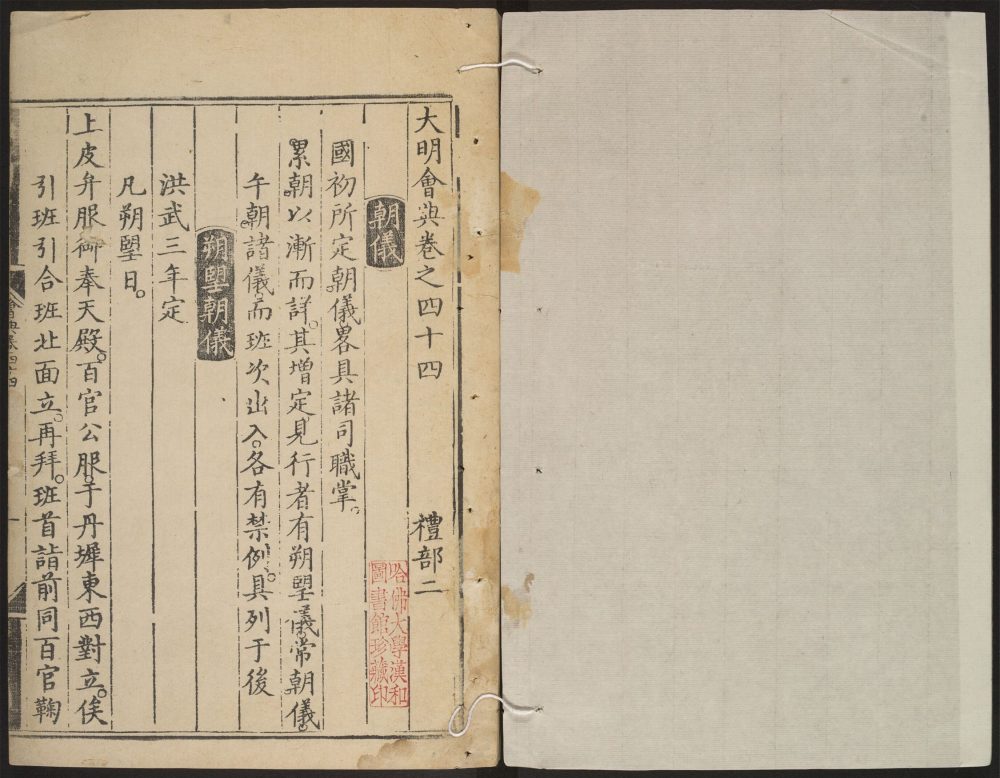 大明會典卷之四十四　禮部二
朝儀
國初所定朝儀畧具諸司職掌。
累朝以漸而詳。其增定見行者有朔朢儀。常朝儀。
午朝諸儀。而班次出入。各有禁例。具列于後
朔朢朝儀
洪武三年定
凡朔朢日。
上皮弁服御奉天殿。百官公服。于丹墀東西對立。俟
引班引合班北面立。再拜。班首詣前同百官鞠
哈佛大學漢和
圖書館珍藏印
會典卷四十四